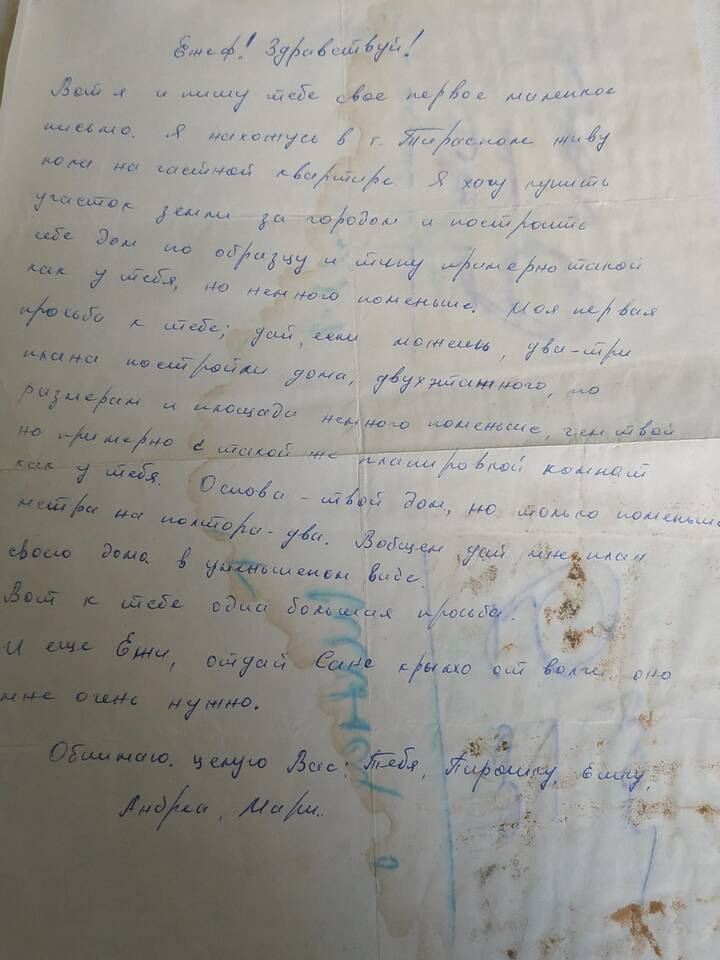 Ежеф! Здравствуй!
Вот я и пишу тебе свое первое маленькое
письмо. Я нахожусь в г. Тирасполе живу
пока на частной квартире. Я хочу купить
участок земли за городом и построить
себе дом по образцу и типу примерно такой
как у тебя, но немного поменьше. Моя первая
просьба к тебе; дай, если можешь, два-три
плана постройки дома, двухэтажного, по
размерам и площади немного поменьше, чем твой
но примерно с такой же планировкой комнат
как у тебя. Основа - твой дом, но только поменьше
метра на полтора-два. Вобщем дай мне план
своего дома в уменьшеном виде.
Вот к тебе одна большая просьба.
И еще Ежи, отдай Сане крыло от волги, оно
мне очень нужно.
Обнимаю. целую Вас: Тебя, Пирошку, Ежику,
Андреа, Мари.